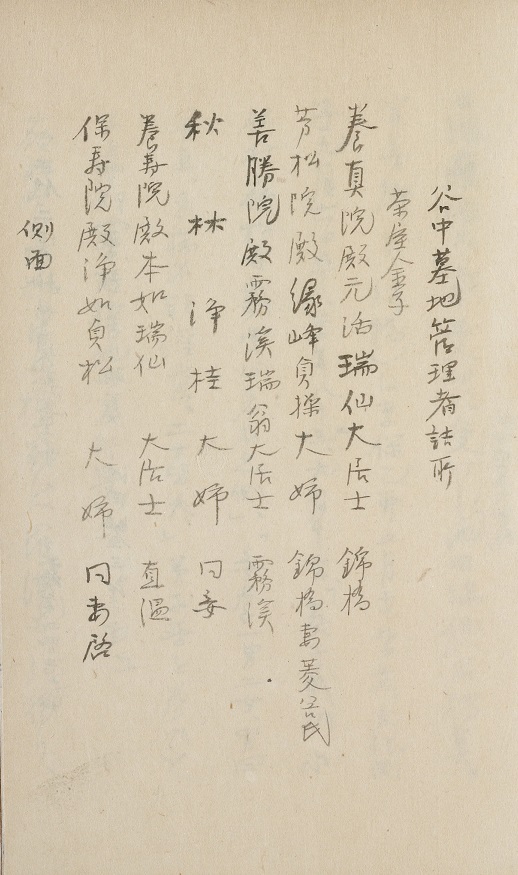 谷中墓地管理者詰所
茶屋金子
養真院殿元活瑞仙大居士 錦橋
芳松院殿縁峰貞操大姉 錦橋妻菱谷氏
善勝院殿霧渓瑞翁大居士 霧渓
秋林浄桂大姉 同妾
養寿院殿本如瑞仙大居士 直温
保寿院殿浄如貞松大姉 同妻啓
側面